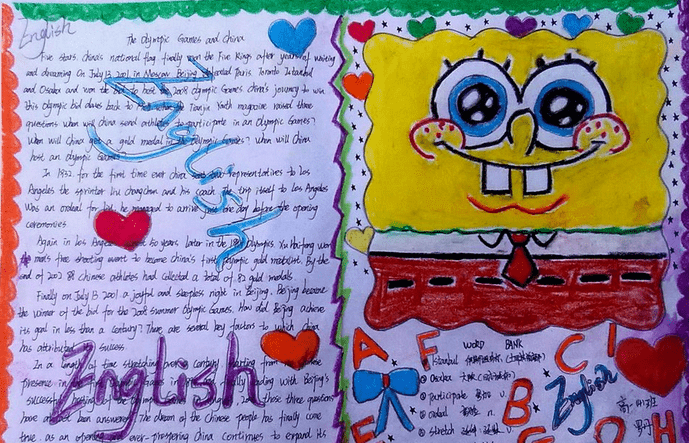 English
The Olympic Games and China
Five stars. china's national flag finally won the Five Rings after years of waiting
and dreaming On July 13 2001 in Moscow Beijing defeated Paris Toronto Istanbul
and Osaka and won the bid to host the 2008 olympic Games china's journey to win
this olympic bid dates back to Tianjin Youth magazine raised three
questions when will China send athletes to participate in an Olympic Games?
When will China get a gold medal in the Olympic Games? when will China
host an olympic Games
In 1932 for the first time ever china sent representatives to Los
Angeles the sprinter Liu changchun and his coach The trip itself to Los Angeles
Was an ordeal for but he managed to arrive just one day before the opening
ceremonies
Again in Los Angeles years later in the Olympics. Xu Hai-feng won
men's free shooting event to become china's first olympic gold medalist. By the
end of 2002 Chinese athletes had collected a total of 82 gold medals
Finally on July 13 2001 a joyful and sleepless night in Beijing. Beijing became
the winner of the bid for the 2008 summer Olympic Games. How did Beijing achieve
its goal in less than a century? There are several key factors to which China
has attributed success
In a length of time stretching over century starting from
presence in finally ending with Beijing's
success hosting of Olympic those three questions
have almost been answered The dream of the Chinese people has finally come
true. as an opening ever-prospering China continues to expand its
English
English
WORD BANK
Istanbul
Osaka
participate v.
medal n.
stretch v.
A F C I
B
E G O H
English